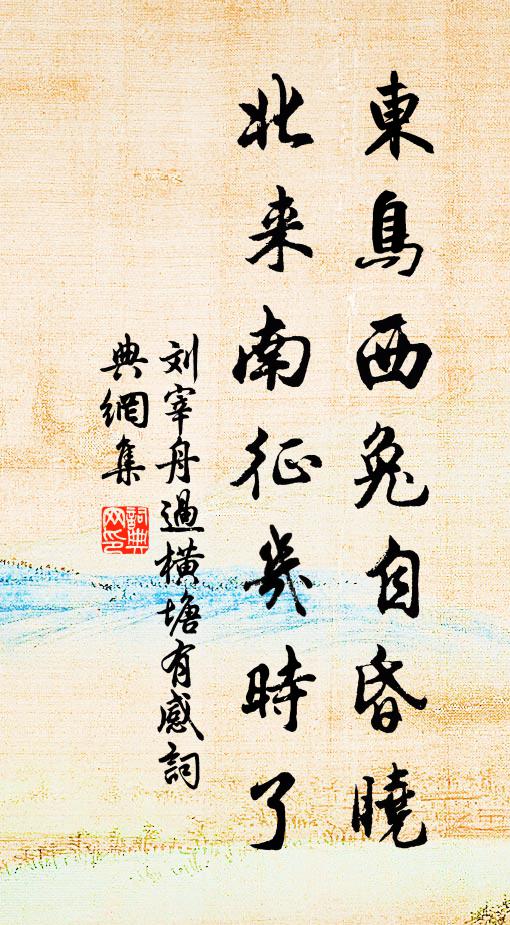 東烏西兔自昏曉
北来南征幾時了
刘宰舟過橫塘有感詞
典網集
詞典
网印